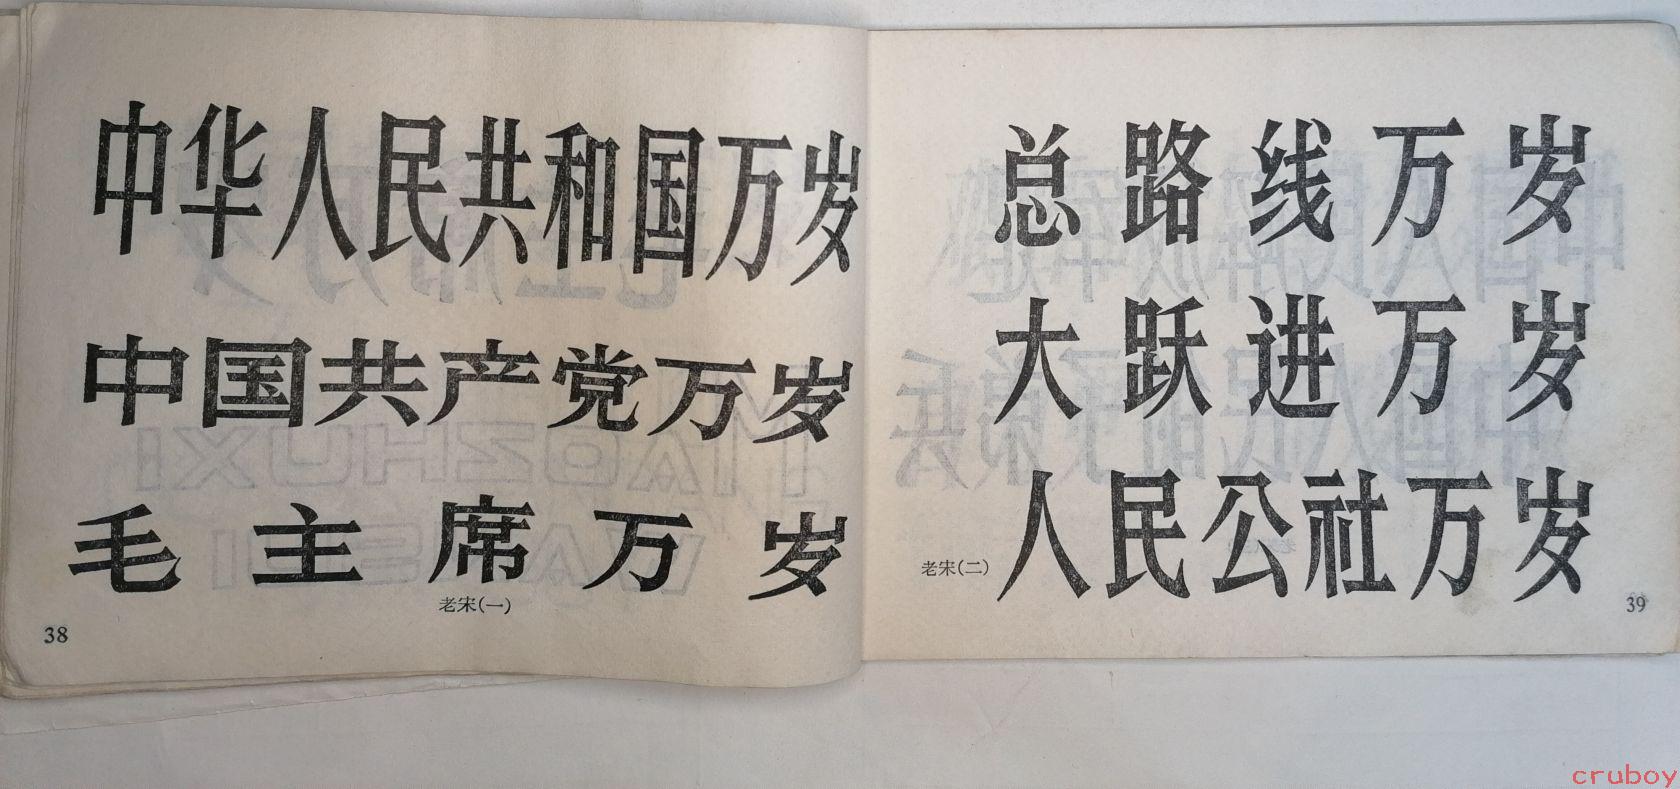 中华人民共和国万岁
中国共产党万岁
毛主席万岁
老宋(一)
38
总路线万岁
大跃进万岁
人民公社万岁
老宋(二)
39
cruboy